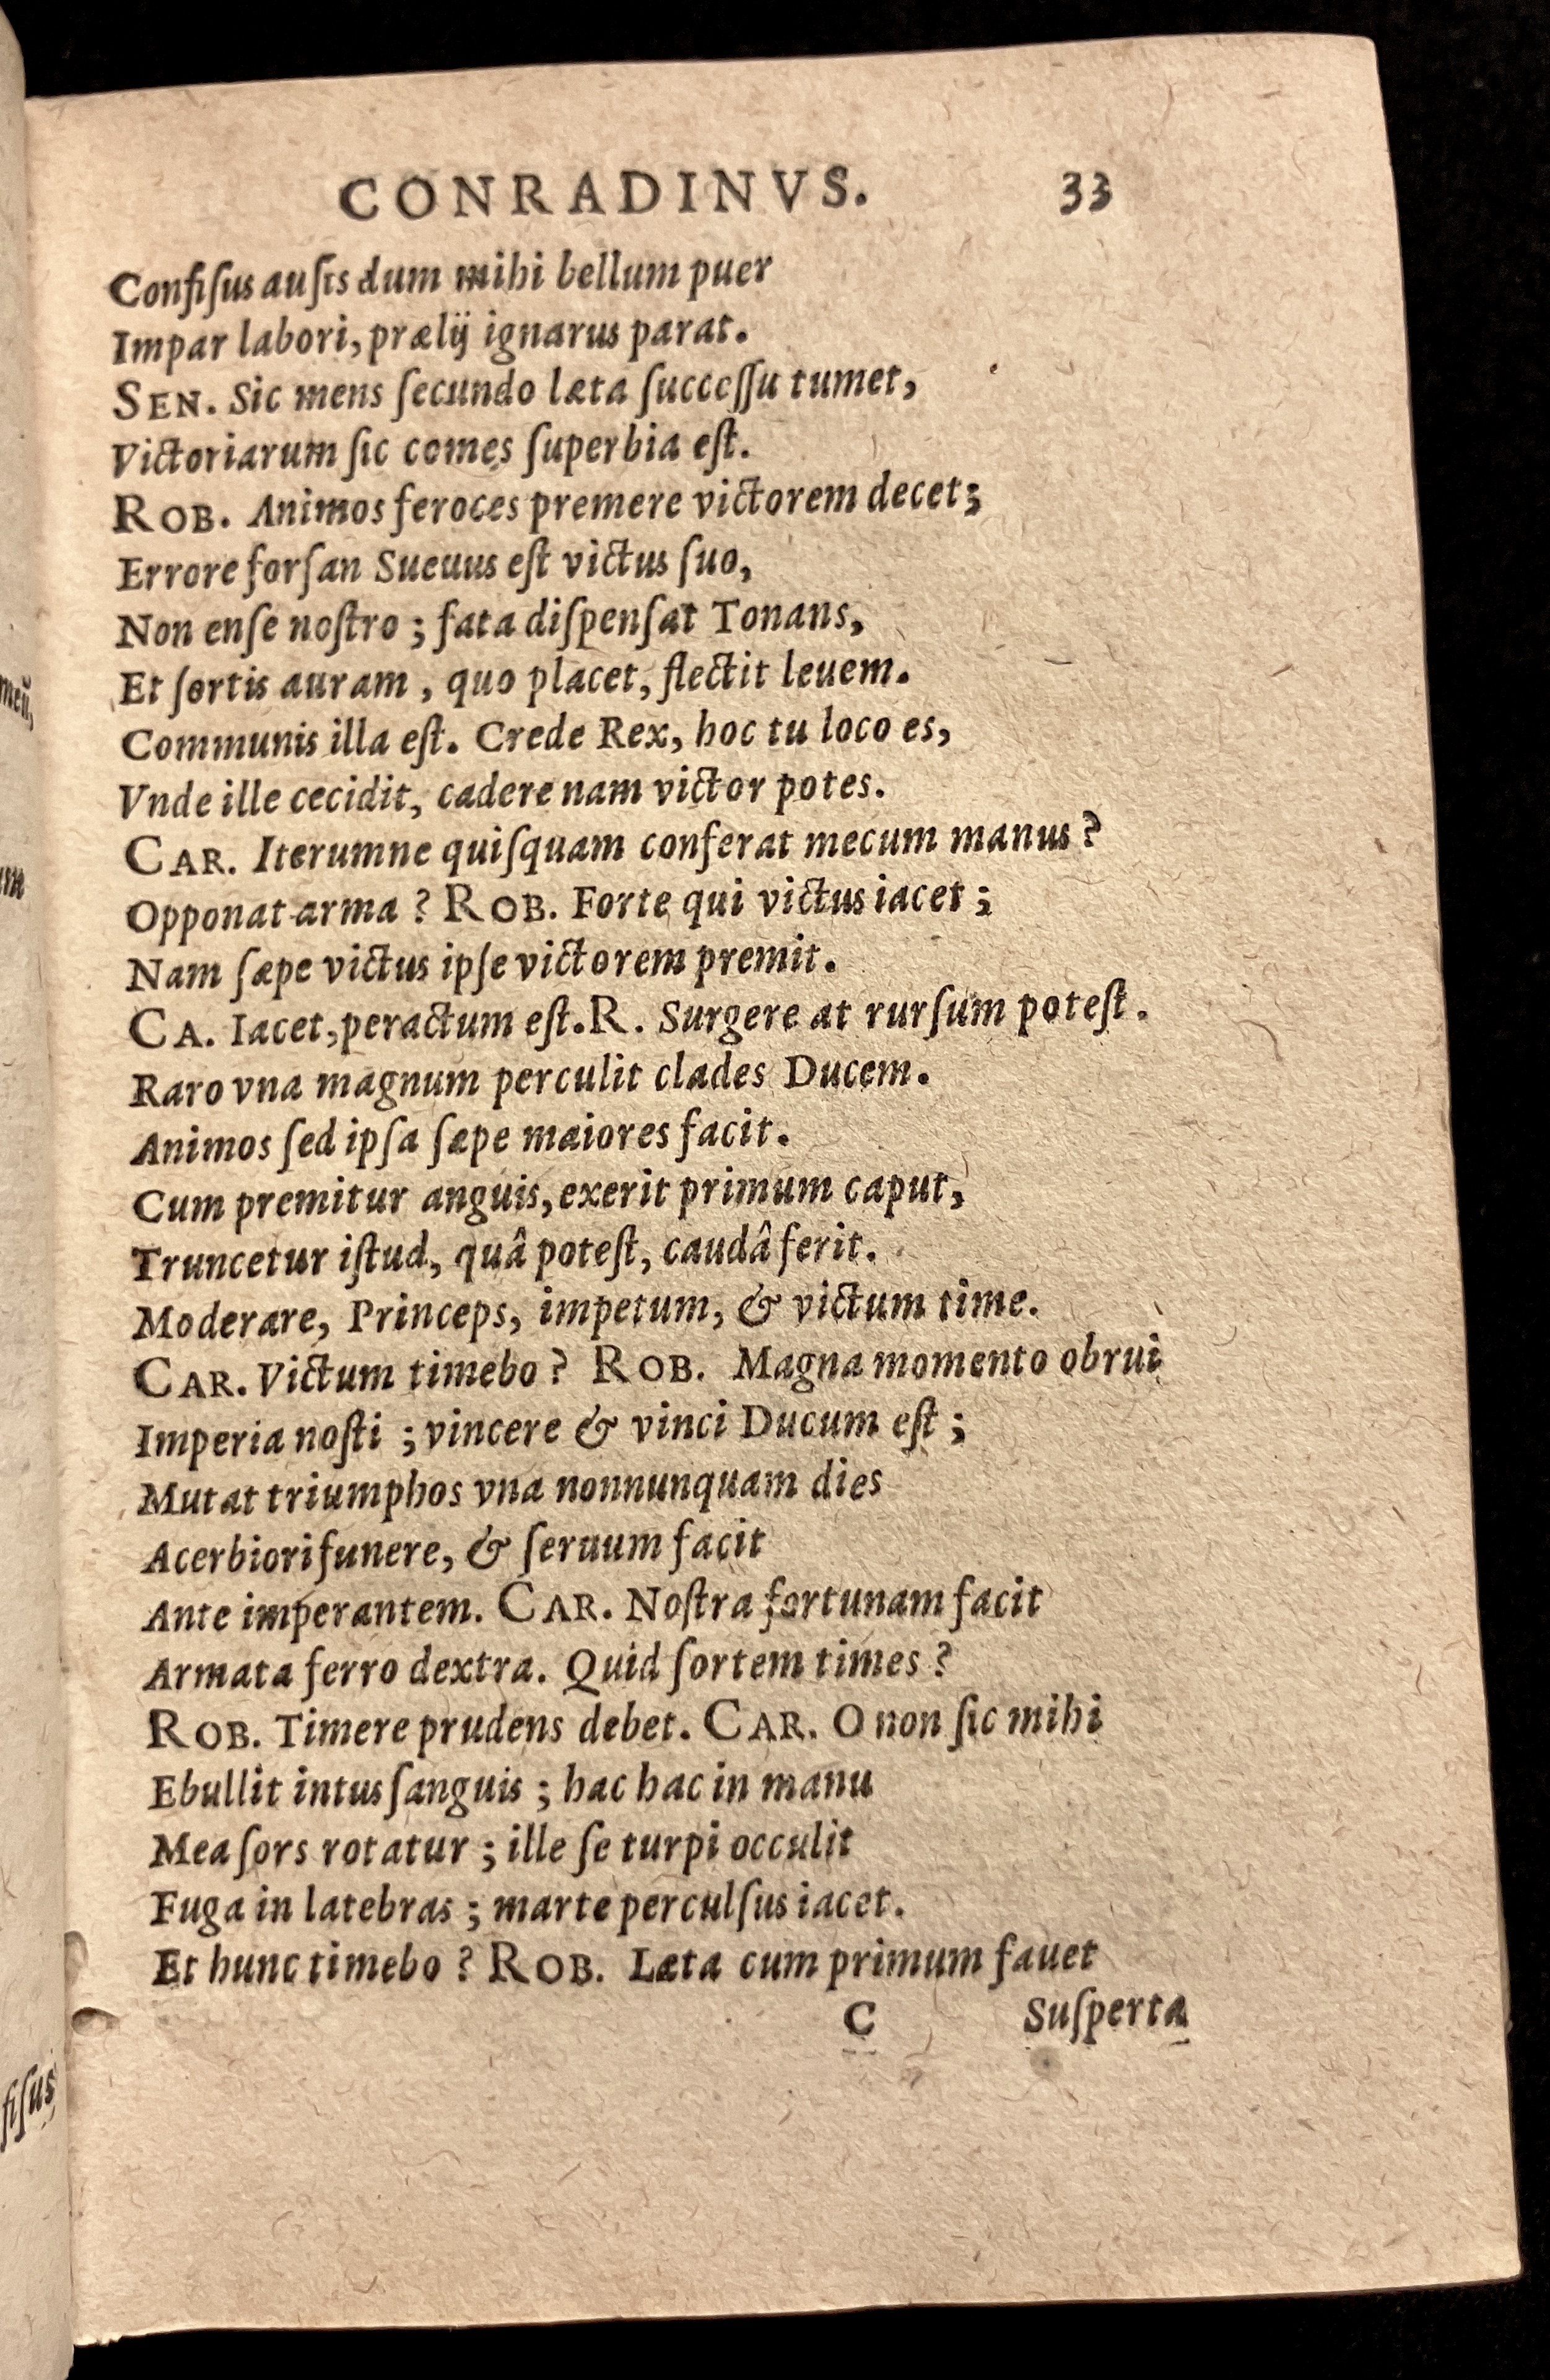 CONRADINVS. 33
Confiſus auſis dum mihi bellum puer
Impar labori, prælij ignarus parat.
SEN. Sic mens ſecundo læta ſucceſſu tumet,
Victoriarum ſic comes ſuperbia eſt.
ROB. Animos feroces premere victorem decet;
Errore forſan Sueuus eſt victus ſuo,
Non enſe noſtro ; fata diſpenſat Tonans,
Et ſortis auram , quo placet, flectit leuem.
Communis illa eſt. Crede Rex, hoc tu loco es,
Vnde ille cecidit, cadere nam victor potes.
CAR. Iterumne quiſquam conferat mecum manus ?
Opponat arma ? ROB. Forte qui victus iacet ;
Nam ſæpe victus ipſe victorem premit.
CA. Iacet, peractum eſt. R. Surgere at rurſum poteſt.
Raro vna magnum perculit clades Ducem.
Animos ſed ipſa ſæpe maiores facit.
Cum premitur anguis, exerit primum caput,
Truncetur iſtud, quâ poteſt, caudâ ferit.
Moderare, Princeps, impetum, & victum time.
CAR. Victum timebo ? ROB. Magna momento obrui
Imperia noſti ; vincere & vinci Ducum eſt ;
Mutat triumphos vna nonnunquam dies
Acerbiori funere, & ſeruum facit
Ante imperantem. CAR. Noſtra fortunam facit
Armata ferro dextra. Quid ſortem times ?
ROB. Timere prudens debet. CAR. O non ſic mihi
Ebullit intus ſanguis ; hac hac in manu
Mea ſors rotatur ; ille ſe turpi occulit
Fuga in latebras ; marte perculſus iacet.
Et hunc timebo ? ROB. Læta cum primum fauet
C Suſperta
meũ,
um
fiſus